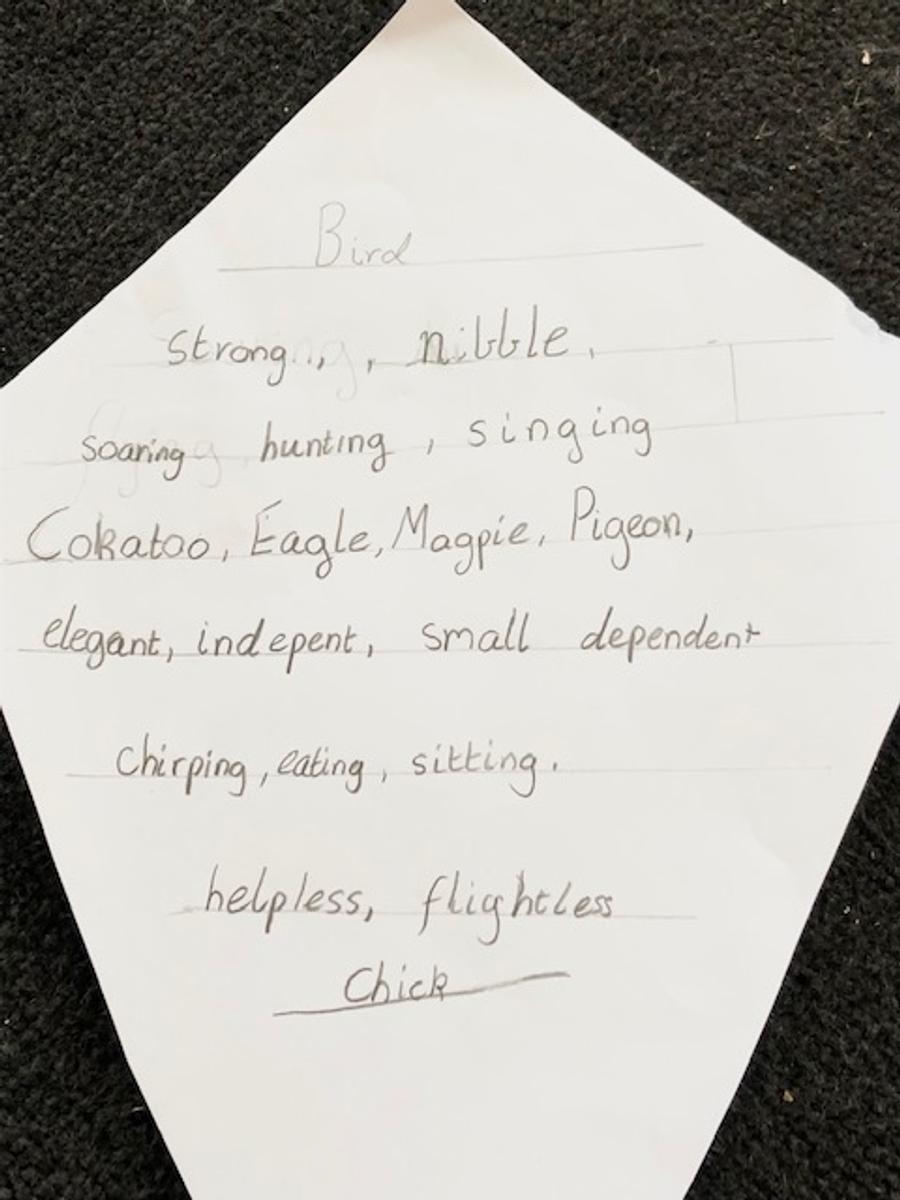 Bird
Strong, , nibble,
soaring hunting, singing
Cokatoo, Eagle, Magpie, Pigeon,
elegant, indepent, small dependent
chirping, eating, sitting.
helpless, flightless
Chick